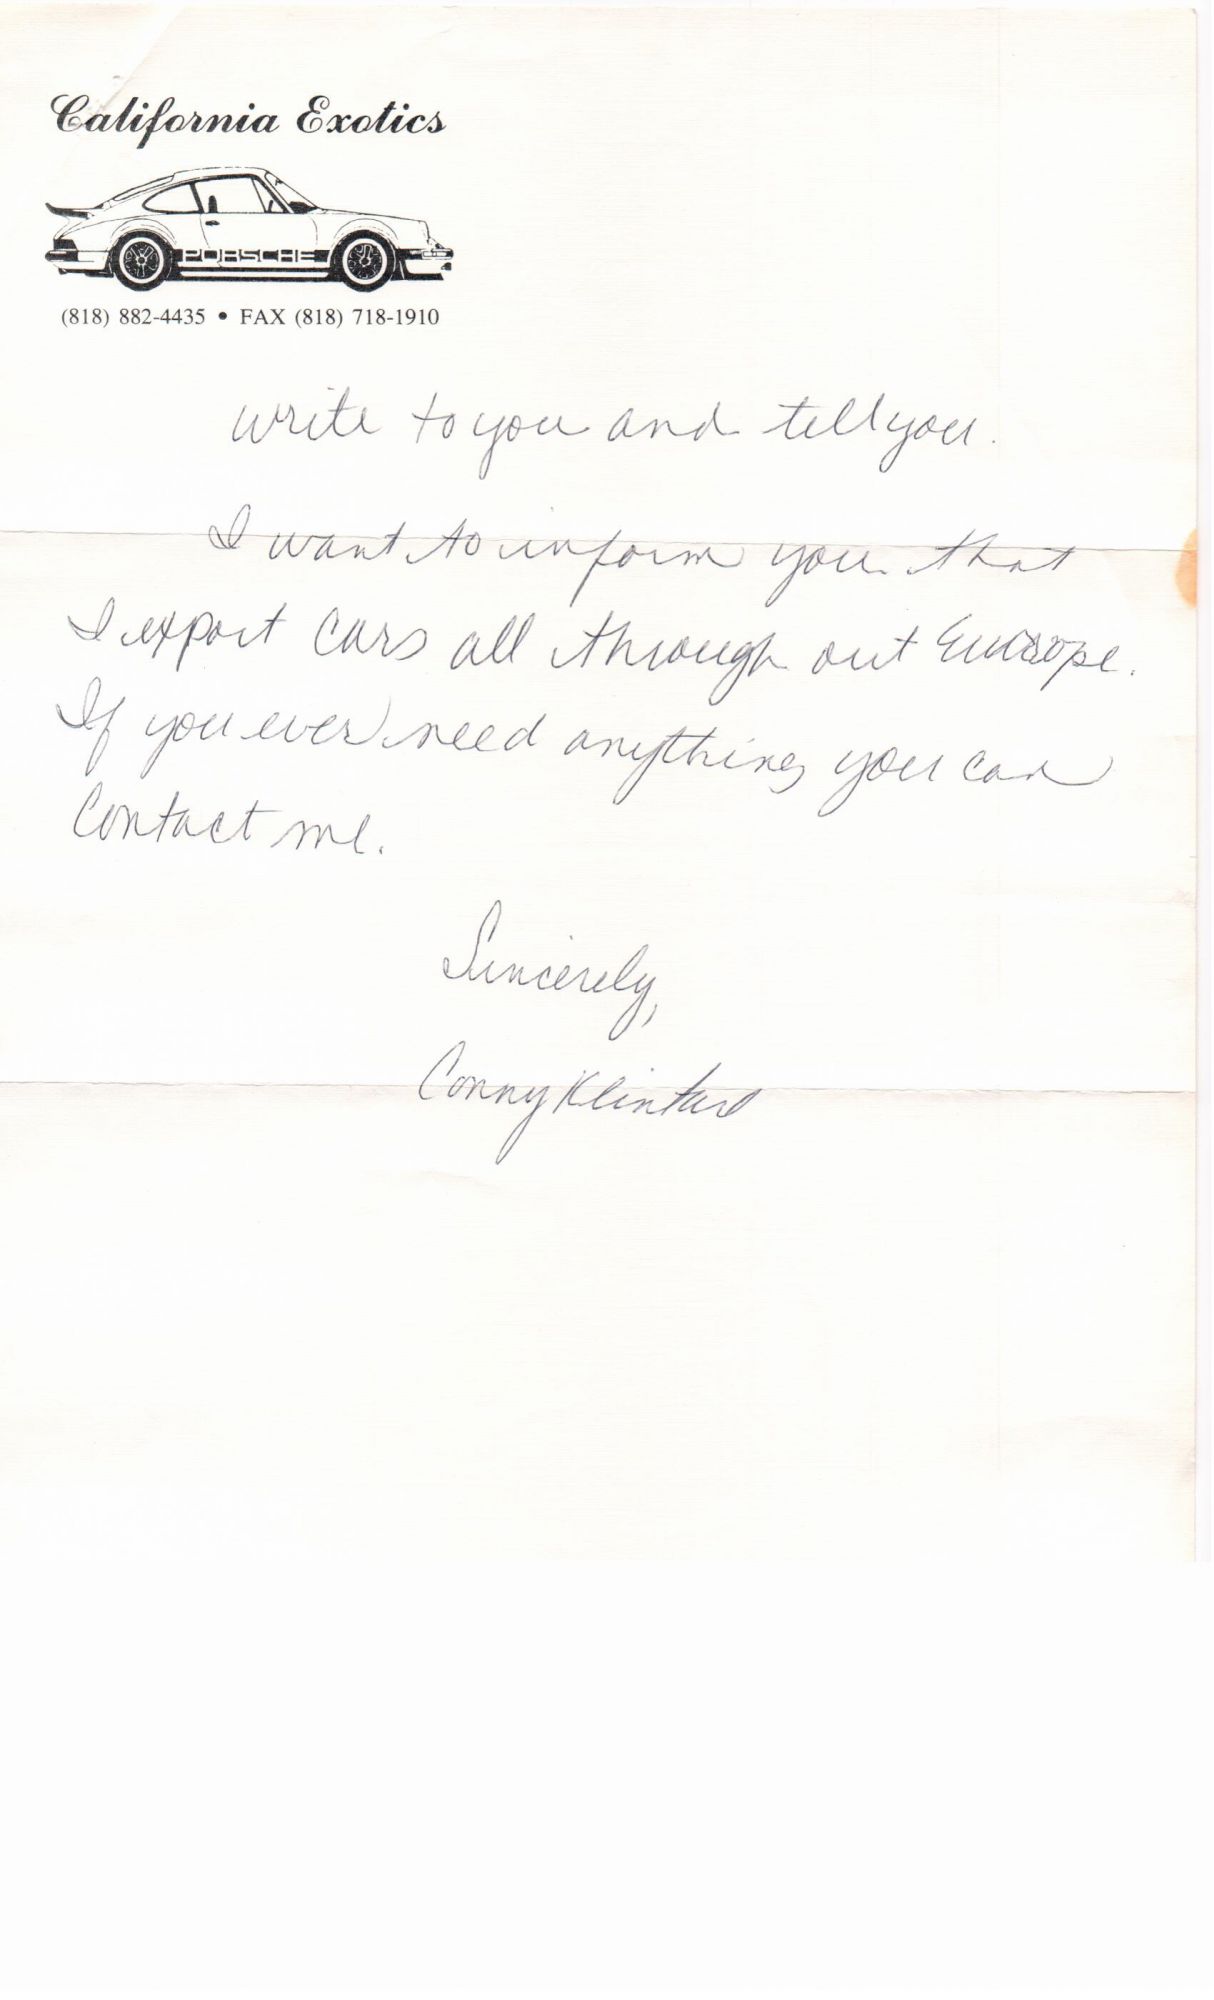 California Exotics
PORSCHE
(818) 882-4435 • FAX (818) 718-1910
write to you and tell you.
I want to inform you that
I export cars all through out Europe.
If you ever need anything you can
Contact me.
Sincerely,
Conny